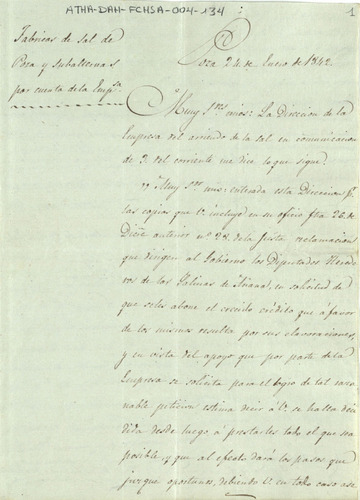 ATHA-DAH-FCHSA-004-134
1
Fabricas de sal de
Poza y subalternas
por cuenta de la Empsa.
Poza 24 de Enero de 1842.
Muy Sres. mios: La Direccion de la
Empresa del arriendo de la sal en comunicacion
de 7 del corriente me dice lo que sigue.
"Muy Sr. mio: enterada esta Direccion pr.
las copias que V. incluyó en su oficio fha 26 de
Dice anterior nº 28 de la justa reclamacion
que dirigen al Gobierno los Diputados Herede
ros de las Salinas de Añana, en solicitud de
que seles abone el crecido crédito que á favor
de los mismos resulta por sus elavoraciones,
y en vista del apoyo que por parte de la
Empresa se solicita para el logro de tal razo
nable peticion estima decir á V. se halla deci
dida desde luego á prestarles todo el que sea
posible, y que al efecto dará los pasos que
juzgue oportunos, debiendo V. en todo caso ase